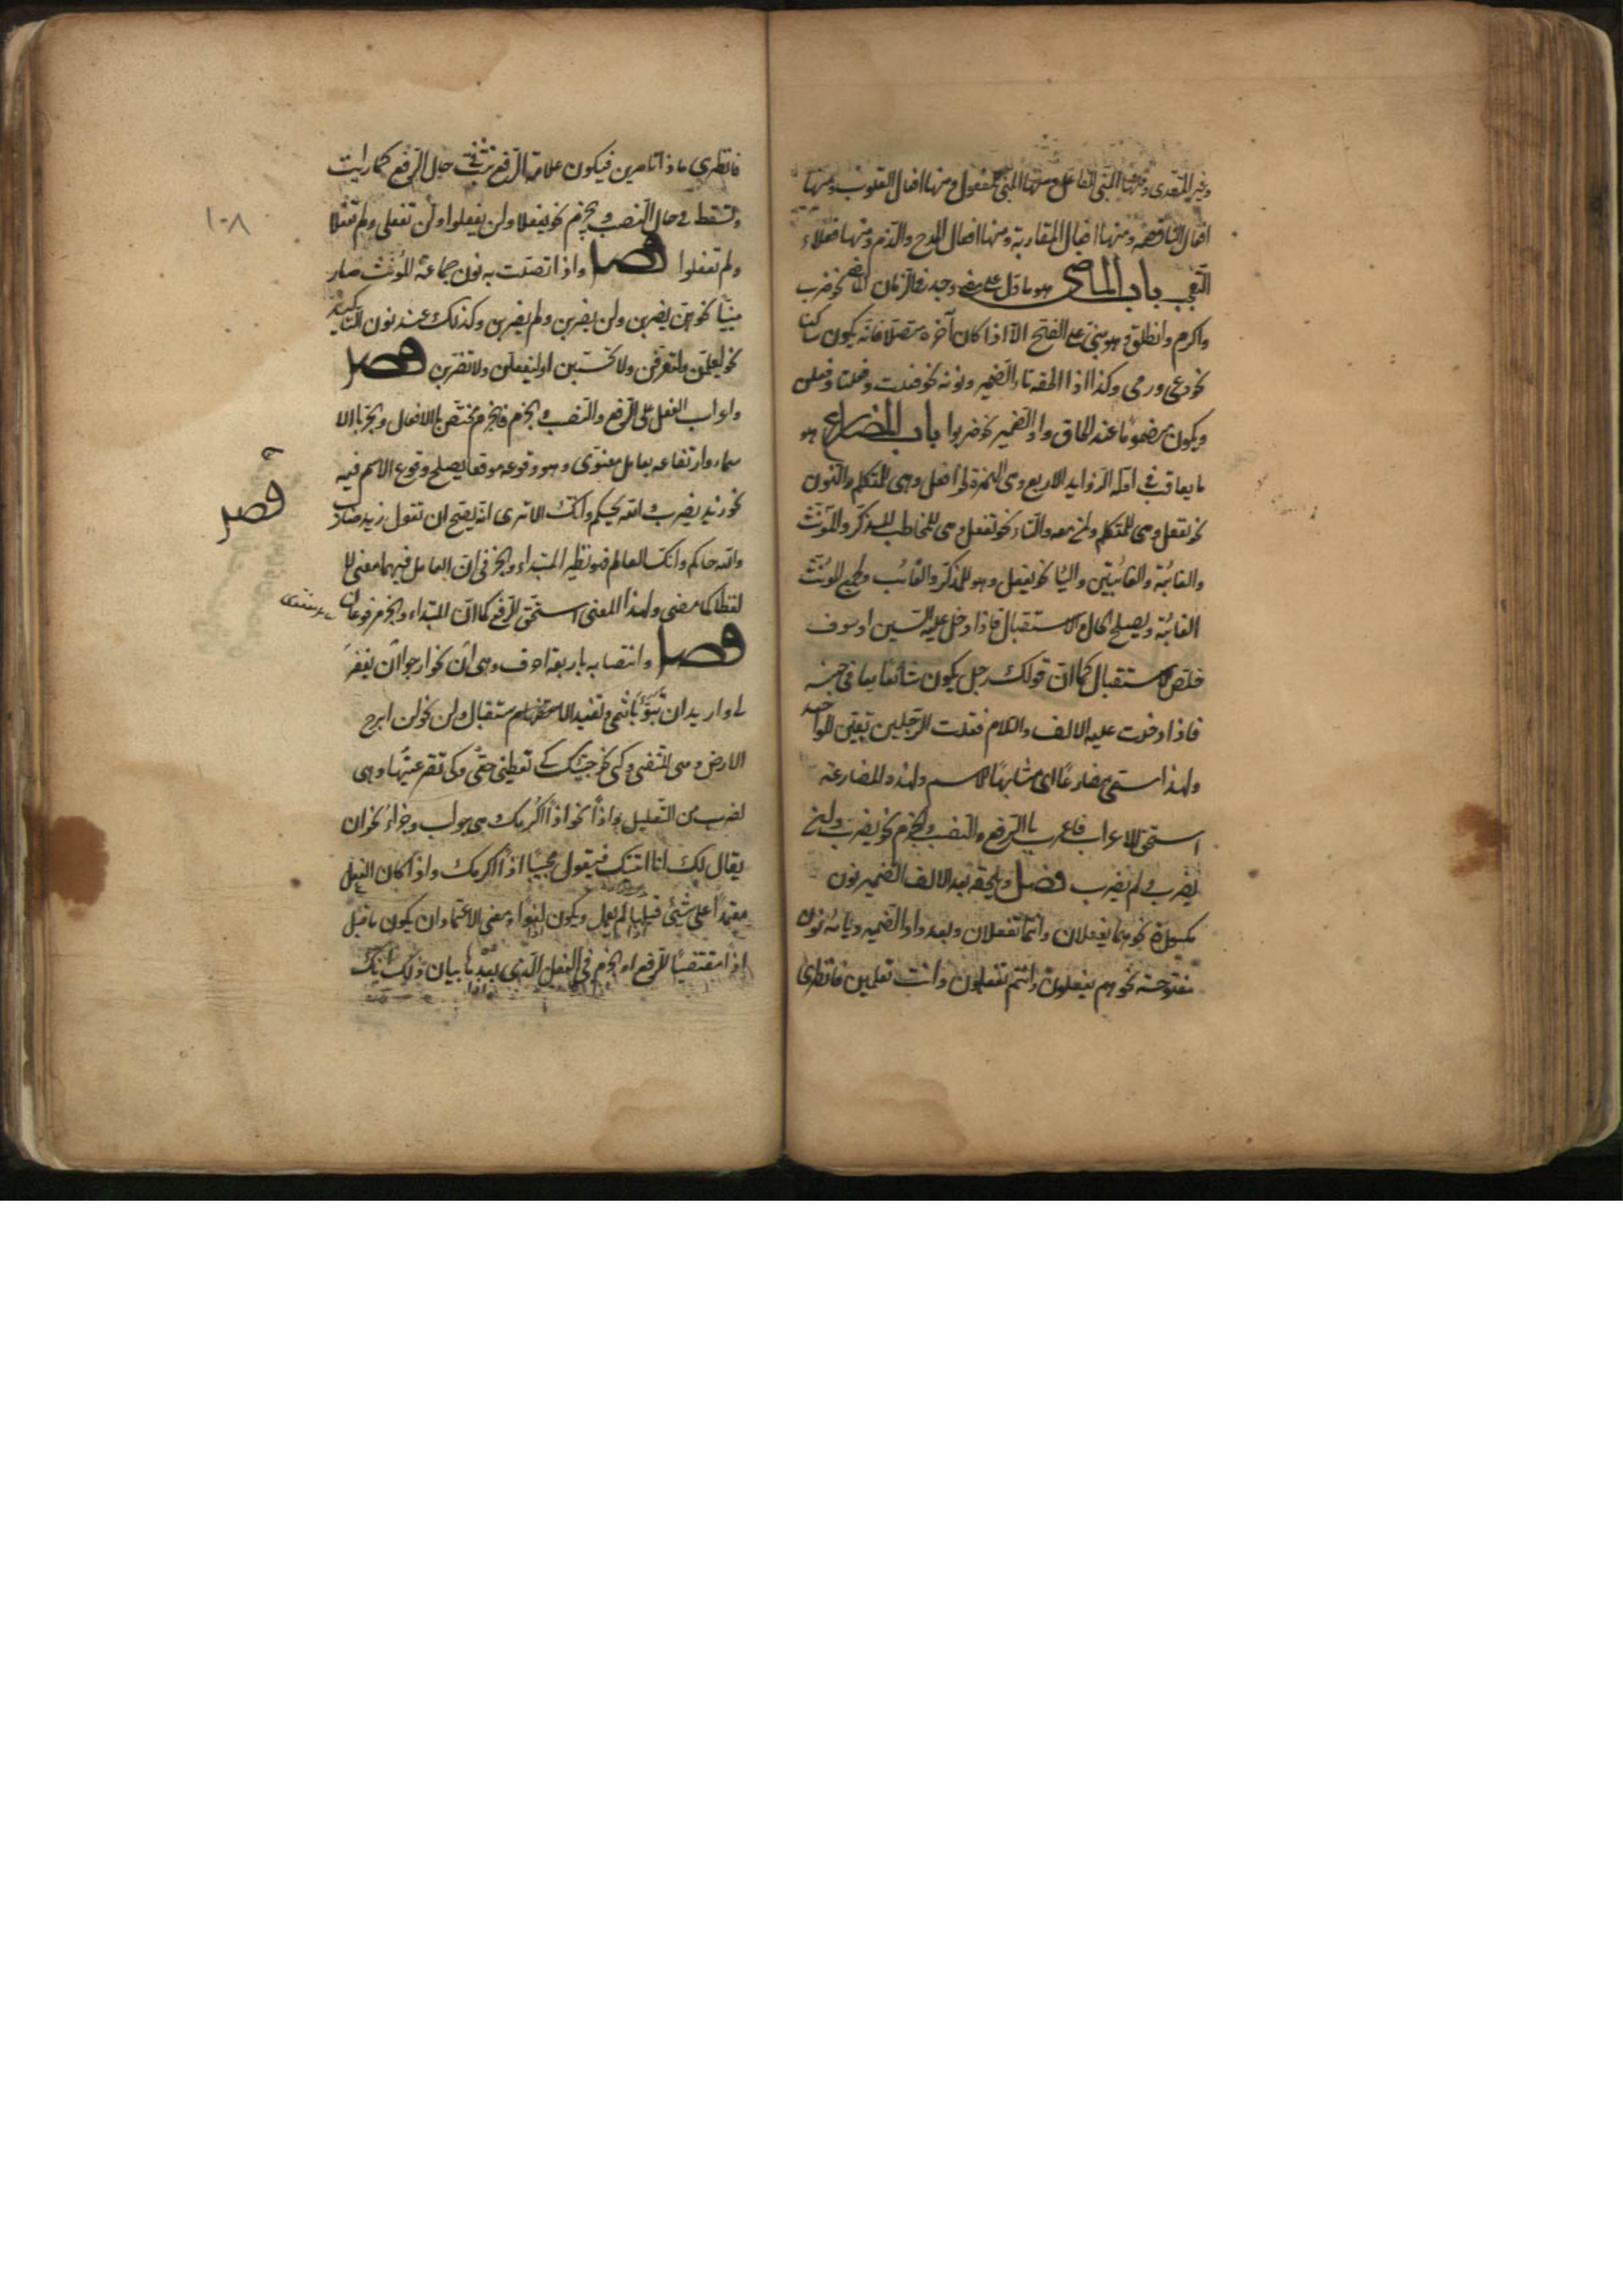 وغير المتعدى ومنها المبنى للفاعل ومنها المبنى للمفعول ومنها افعال القلوب ومنها
افعال الناقصة ومنها افعال المقاربة ومنها افعال المدح والذم ومنها فعلاء
التعجب باب الماضى هو ما دل على وجد فى الزمان نحو ضرب
واكرم وانطلق وهو مبنى على الفتح الا اذا كان آخره فانه يكون ساكنا
نحو دعى ورمى وكذا اذا الحقه تاء الضمير ونونه نحو فعلت وفعلنا وفعلن
ويكون مضموما عند الحاق واو الضمير نحو ضربوا باب المضارع هو
ما يعاقب فى اوله الزوايد الاربع وهى الهمزة نحو افعل وهى للمتكلم والنون
نحو نفعل وهى للمتكلم ومن معه والتاء نحو تفعل وهى للمخاطب للمذكر والمؤنث
والغائبة والغائبتين واليا نحو يفعل وهو للمذكر والغائب ولجمع المؤنث
الغائبة ويصلح للحال والاستقبال فاذا دخل عليه السين او سوف
خلص للاستقبال كما ان قولك رجل يكون شائعا فى جنسه
فاذا دخلت عليه الالف واللام فقلت الرجل تعين للواحد
ولهذا سمى مضارعا اى مشابها للاسم ولهذه المضارعة
استحق الاعراب فاعرب بالرفع والنصب والجزم نحو يضرب ولن
يضرب ولم يضرب فصل ويلحقه بعد الالف الضمير نون
مكسورة نحو هما يفعلان وانتما تفعلان وبعد واو الضمير ويائه نون
مفتوحة نحو هم يفعلون وانتم تفعلون وانت تعلمين فانظرى
فانظرى ماذا تامرين فيكون علامة الرفع حال الرفع كما رايت
وتسقط فى حال النصب والجزم نحو لن يفعلا ولن يفعلوا ولن تفعلى ولم تفعلا
١٠٨
ولم تفعلوا فصل واذا اتصلت به نون جماعة المؤنث صار
مبنيا نحو هن يضربن ولن يضربن ولم يضربن وكذلك عند نون التاكيد
نحو ليعلمن ولتعرفن ولا تحسبن او ليفعلن ولا تضربن فصل
واعراب الفعل على الرفع والنصب والجزم فالجزم مختص بالافعال والجر بالا
سماء وارتفاعه بعامل معنوى وهو وقوعه موقعا يصلح وقوع الاسم فيه
فصل
نحو زيد يضرب والله يحكم وانك الا ترى انه يصح ان تقول زيد ضارب
والله حاكم وانك لعالم فهو نظير المبتداء والخبر فى ان العامل فيهما معنى لا
لفظا كما مضى ولهذا المعنى استحق الرفع كما ان المبتداء والخبر مرفوعان
فصل وانتصابه باربعة احرف وهى ان نحو ارجوا ان يغفر
لى واريد ان تبوأ باثمى وتفيد الاستقبال ولن نحو لن ابرح
الارض وهى للنفى وكى نحو جئتك كى تعطينى حقى وكى تقر عينها وهى
لضرب من التعليل واذا نحو اذا اكرمك وهى جواب وجزاء نحو ان
يقال لك انا اتيك فيقول مجيبا اذا اكرمك واذا كان الفعل
معتمدا على شئ قبلها لم يعمل ويكون لغوا ومعنى الاعتماد ان يكون ما قبل
اذا مقتضيا للرفع او الجزم فى الفعل الذى بعدها بيان ذلك انك